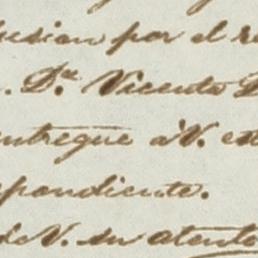 lusion por el re
. Dn. Vicente D
entregue á V. est
pondiente.
de V. su atento